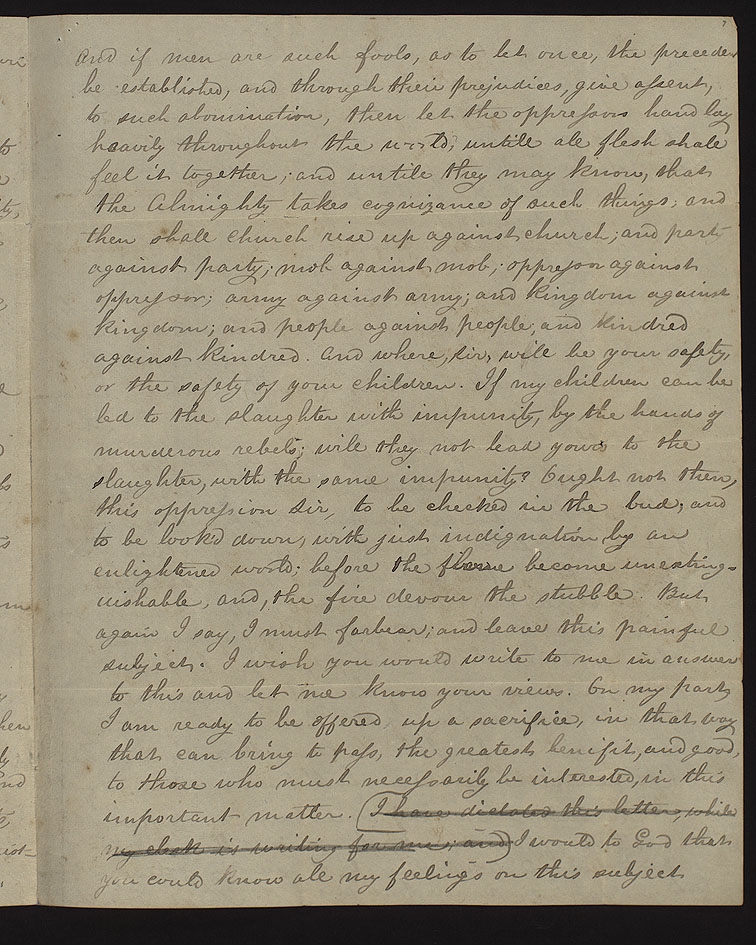 7
and if men are such fools, as to let once, the preceden
be established, and through their prejudices, give assent,
to such abomination, then let the oppressors hand lay
heavily throughout the world, untile all flesh shall
feel it together; and untile they may know, that
the Almighty takes cognizance of such things; and
then shall church rise up against church; and part
against party; mob against mob; oppressor against
oppressor; army against army; and kingdom against
kingdom; and people against people, and kindred
against kindred. And where, sir, will be your safety,
or the safety of your children. If my children can be
led to the slaughter with impunity, by the hands of
murderous rebels; will they not lead yours to the
slaughter, with the same impunity? Ought not then,
this oppression Sir, to be checked in the bud; and
to be look'd down, with just indignation by an
enlightened world; before the flame become unexting=
uishable, and, the fire devour the stubble. But
again I say, I must forbear; and leave this painful
subject. I wish you would write to me in answer
to this and let me know your views. On my part
I am ready to be offered, up a sacrifice, in that way
that can bring to pass, the greatest benifit, and good,
to those who must necessarily be interested, in this
important matter. (I have dictated this letter, while
my clerk is writing for me; and) I would to God that
you could know all my feelings on this subject